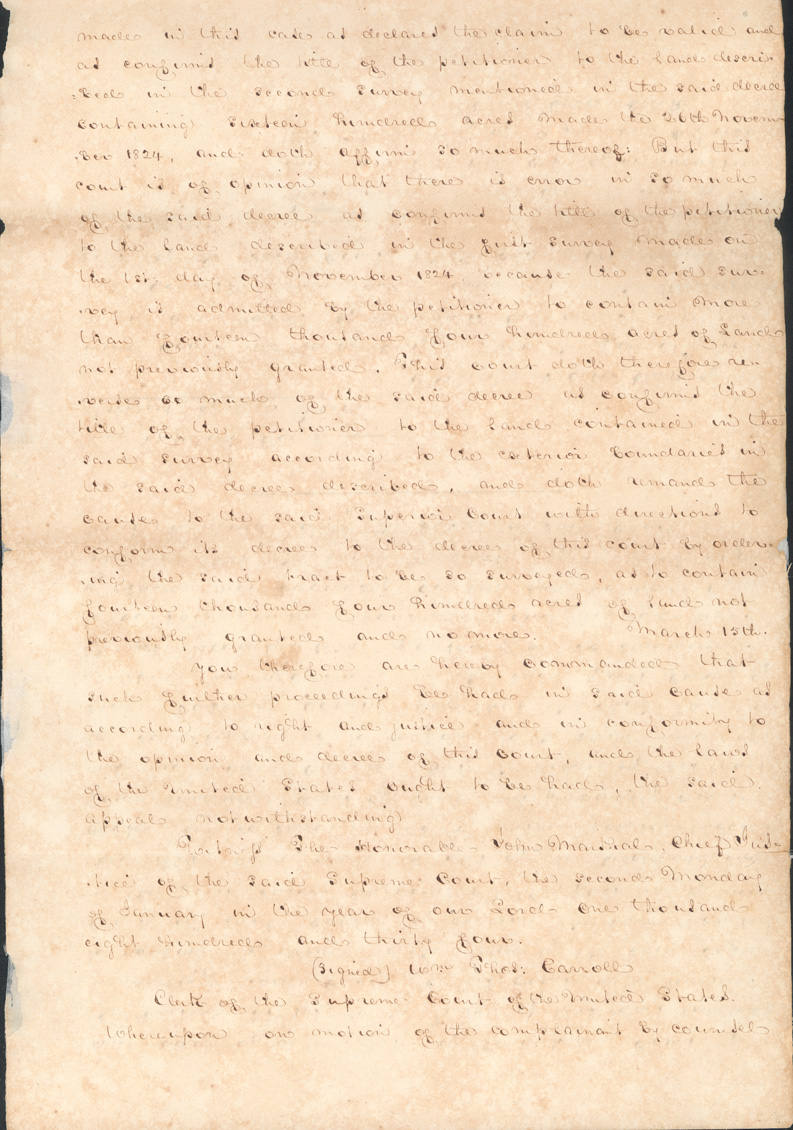 made in this case as declares the claim to be valid and
as confirms the title of the petitioner to the land descri-
:bed in the second survey mentioned in the said decree
containing sixteen hundred acres made the 26th Novem
:ber 1824, and doth affirm so much thereof: But this
court is of opinion that there is error in so much
of the said decree as confirms the title of the petitioner
to the land described in the first survey made on
the 1st day of November 1824 because the said sur-
:vey is admitted by the petitioner to contain more
than fourteen thousand four hundred acres of Land
not previously granted. This court doth therefore re-
:verse so much of the said decree as confirms the
title of the petitioner to the land contained in the
said survey according to the exterior boundaries in
the said decree described, and doth remand the
cause to the said Superior Court with directions to
conform its decree to the decree of this court by order-
:ing the said tract to be so surveyed, as to contain
fourteen thousand four hundred acres of land not
previously granted and no more. March 15th.
You therefore are hereby commanded that
such further proceedings be had in said cause as
according to right and justice and in conformity to
the opinion and decree of this Court, and the laws
of the United States ought to be had, the said
appeal notwithstanding
The Honorable John Marshal, Chief Jus-
:tice of the said Supreme Court, the second Monday
of January in the year of our Lord one thousand
eight hundred and thirty four.
(Signed) Wm Thos: Carroll
Clerk of the Supreme Court of the United States.
Whereupon on motion of the complainant by counsel